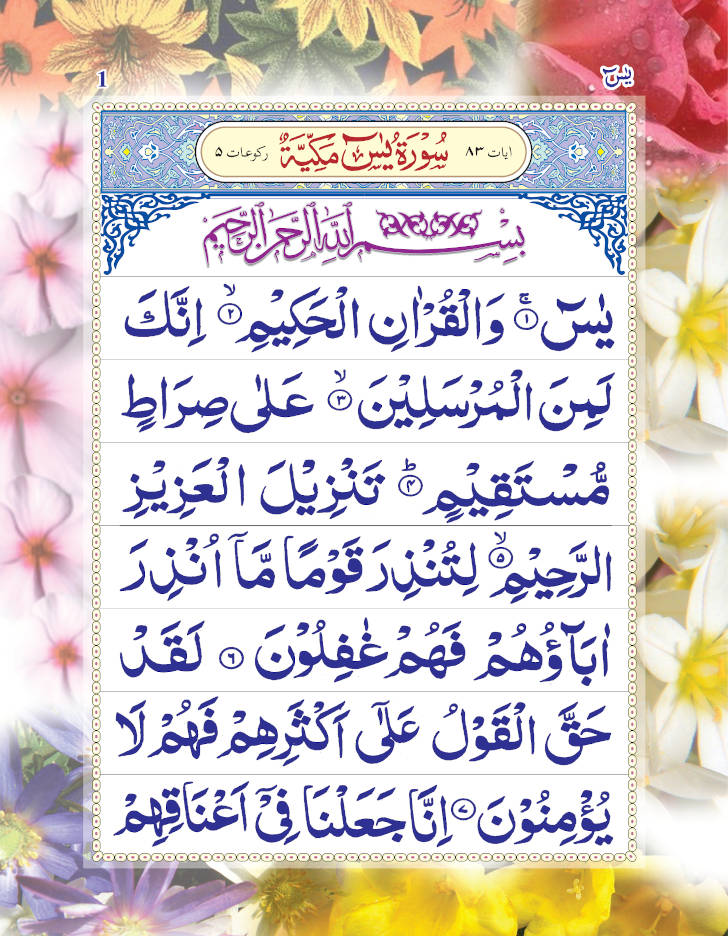 1 يٰسٓ
اٰيات ٨٣ سُوْرَةُ يٰسٓ مَكِّيَّةٌ ركوعات ٥
بِسْمِ اللّٰهِ الرَّحْمٰنِ الرَّحِيْمِ
يٰسٓ ۚ﴿١﴾ وَالْقُرْاٰنِ الْحَكِيْمِ ۙ﴿٢﴾ اِنَّكَ
لَمِنَ الْمُرْسَلِيْنَ ۙ﴿٣﴾ عَلٰى صِرَاطٍ
مُّسْتَقِيْمٍ ؕ﴿۴﴾ تَنْزِيْلَ الْعَزِيْزِ
الرَّحِيْمِ ۙ﴿۵﴾ لِتُنْذِرَ قَوْمًا مَّاۤ اُنْذِرَ
اٰبَآؤُهُمْ فَهُمْ غٰفِلُوْنَ ﴿٦﴾ لَقَدْ
حَقَّ الْقَوْلُ عَلٰۤى اَكْثَرِهِمْ فَهُمْ لَا
يُؤْمِنُوْنَ ﴿٧﴾ اِنَّا جَعَلْنَا فِيْۤ اَعْنَاقِهِمْ